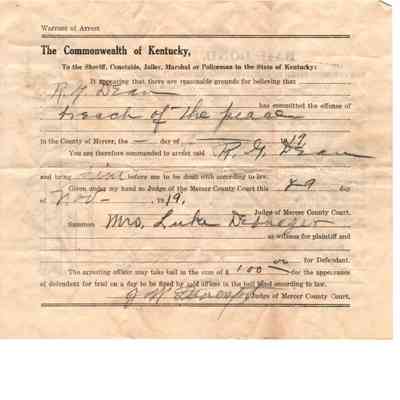 Warrant of Arrest
The Commonwealth of Kentucky,
To the Sheriff, Constable, Jailer, Marshal or Policeman in the State of Kentucky:
It appearing that there are reasonable grounds for believing that
R. G. Dean has committed the offense of
breach of the peace
in the County of Mercer, the — day of 19
You are therefore commanded to arrest said R. G. Dean
and bring him before me to be dealt with according to law.
Given under my hand as Judge of the Mercer County Court this 29 day
of Nov - 19
Judge of Mercer County Court.
Summon Mrs. Luke
as witness for plaintiff and
for Defendant.
The arresting officer may take bail in the sum of $ 100 00 for the appearance
of defendant for trial on a day to be fixed by said officer in the bail bond according to law.
Judge of Mercer County Court.